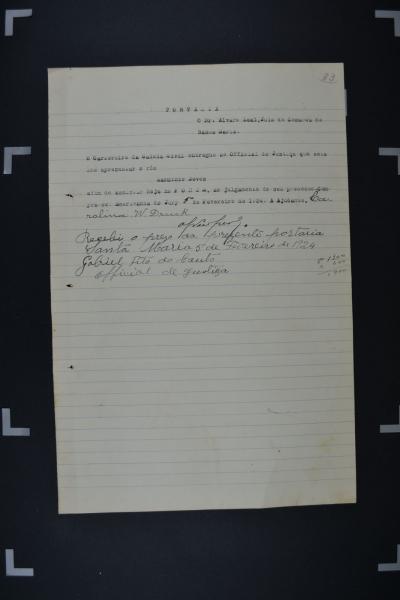 83
PORTARIA
O Dr. Alvaro Leal, Juiz de Comarca de
Santa Maria.
O Carcereiro da Cadeia Civil entregue ao Official de Justiça que esta
lhe apresentar o réo
afim de assistir hoje no FORUM, ao julgamento do seu processo
Jury 5 de Fevereiro de 1924. A Ajudante, Ca-
rolina W. Druck
Recebi o prezo da prezente portaria
Santa Maria 5 de Fevereiro de 1924
Gabriel Tito do Canto
Official de justiça